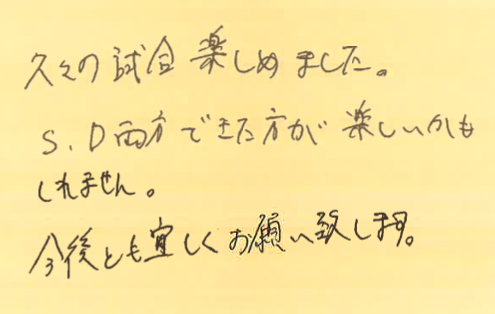 久々の試合楽しめました。
S、D両方できた方が楽しいかも
しれません。
今後とも宜しくお願い致します。